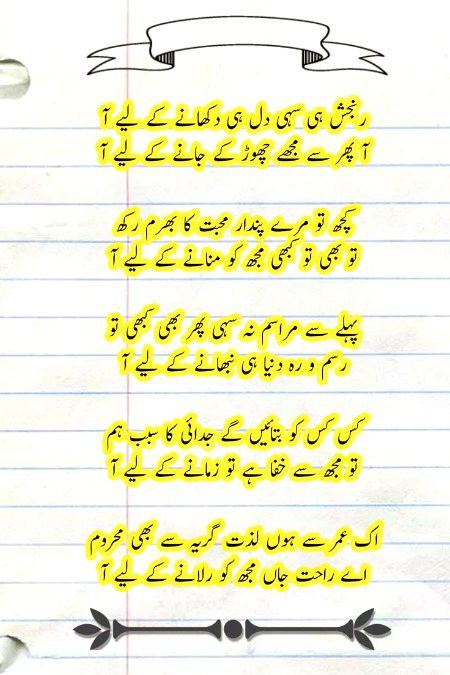 رنجش ہی سہی دل ہی دکھانے کے لیے آ
آ پھر سے مجھے چھوڑ کے جانے کے لیے آ
کچھ تو مرے پندار محبت کا بھرم رکھ
تو بھی تو کبھی مجھ کو منانے کے لیے آ
پہلے سے مراسم نہ سہی پھر بھی کبھی تو
رسم و رہ دنیا ہی نبھانے کے لیے آ
کس کس کو بتائیں گے جدائی کا سبب ہم
تو مجھ سے خفا ہے تو زمانے کے لیے آ
اک عمر سے ہوں لذت گریہ سے بھی محروم
اے راحت جاں مجھ کو رلانے کے لیے آ